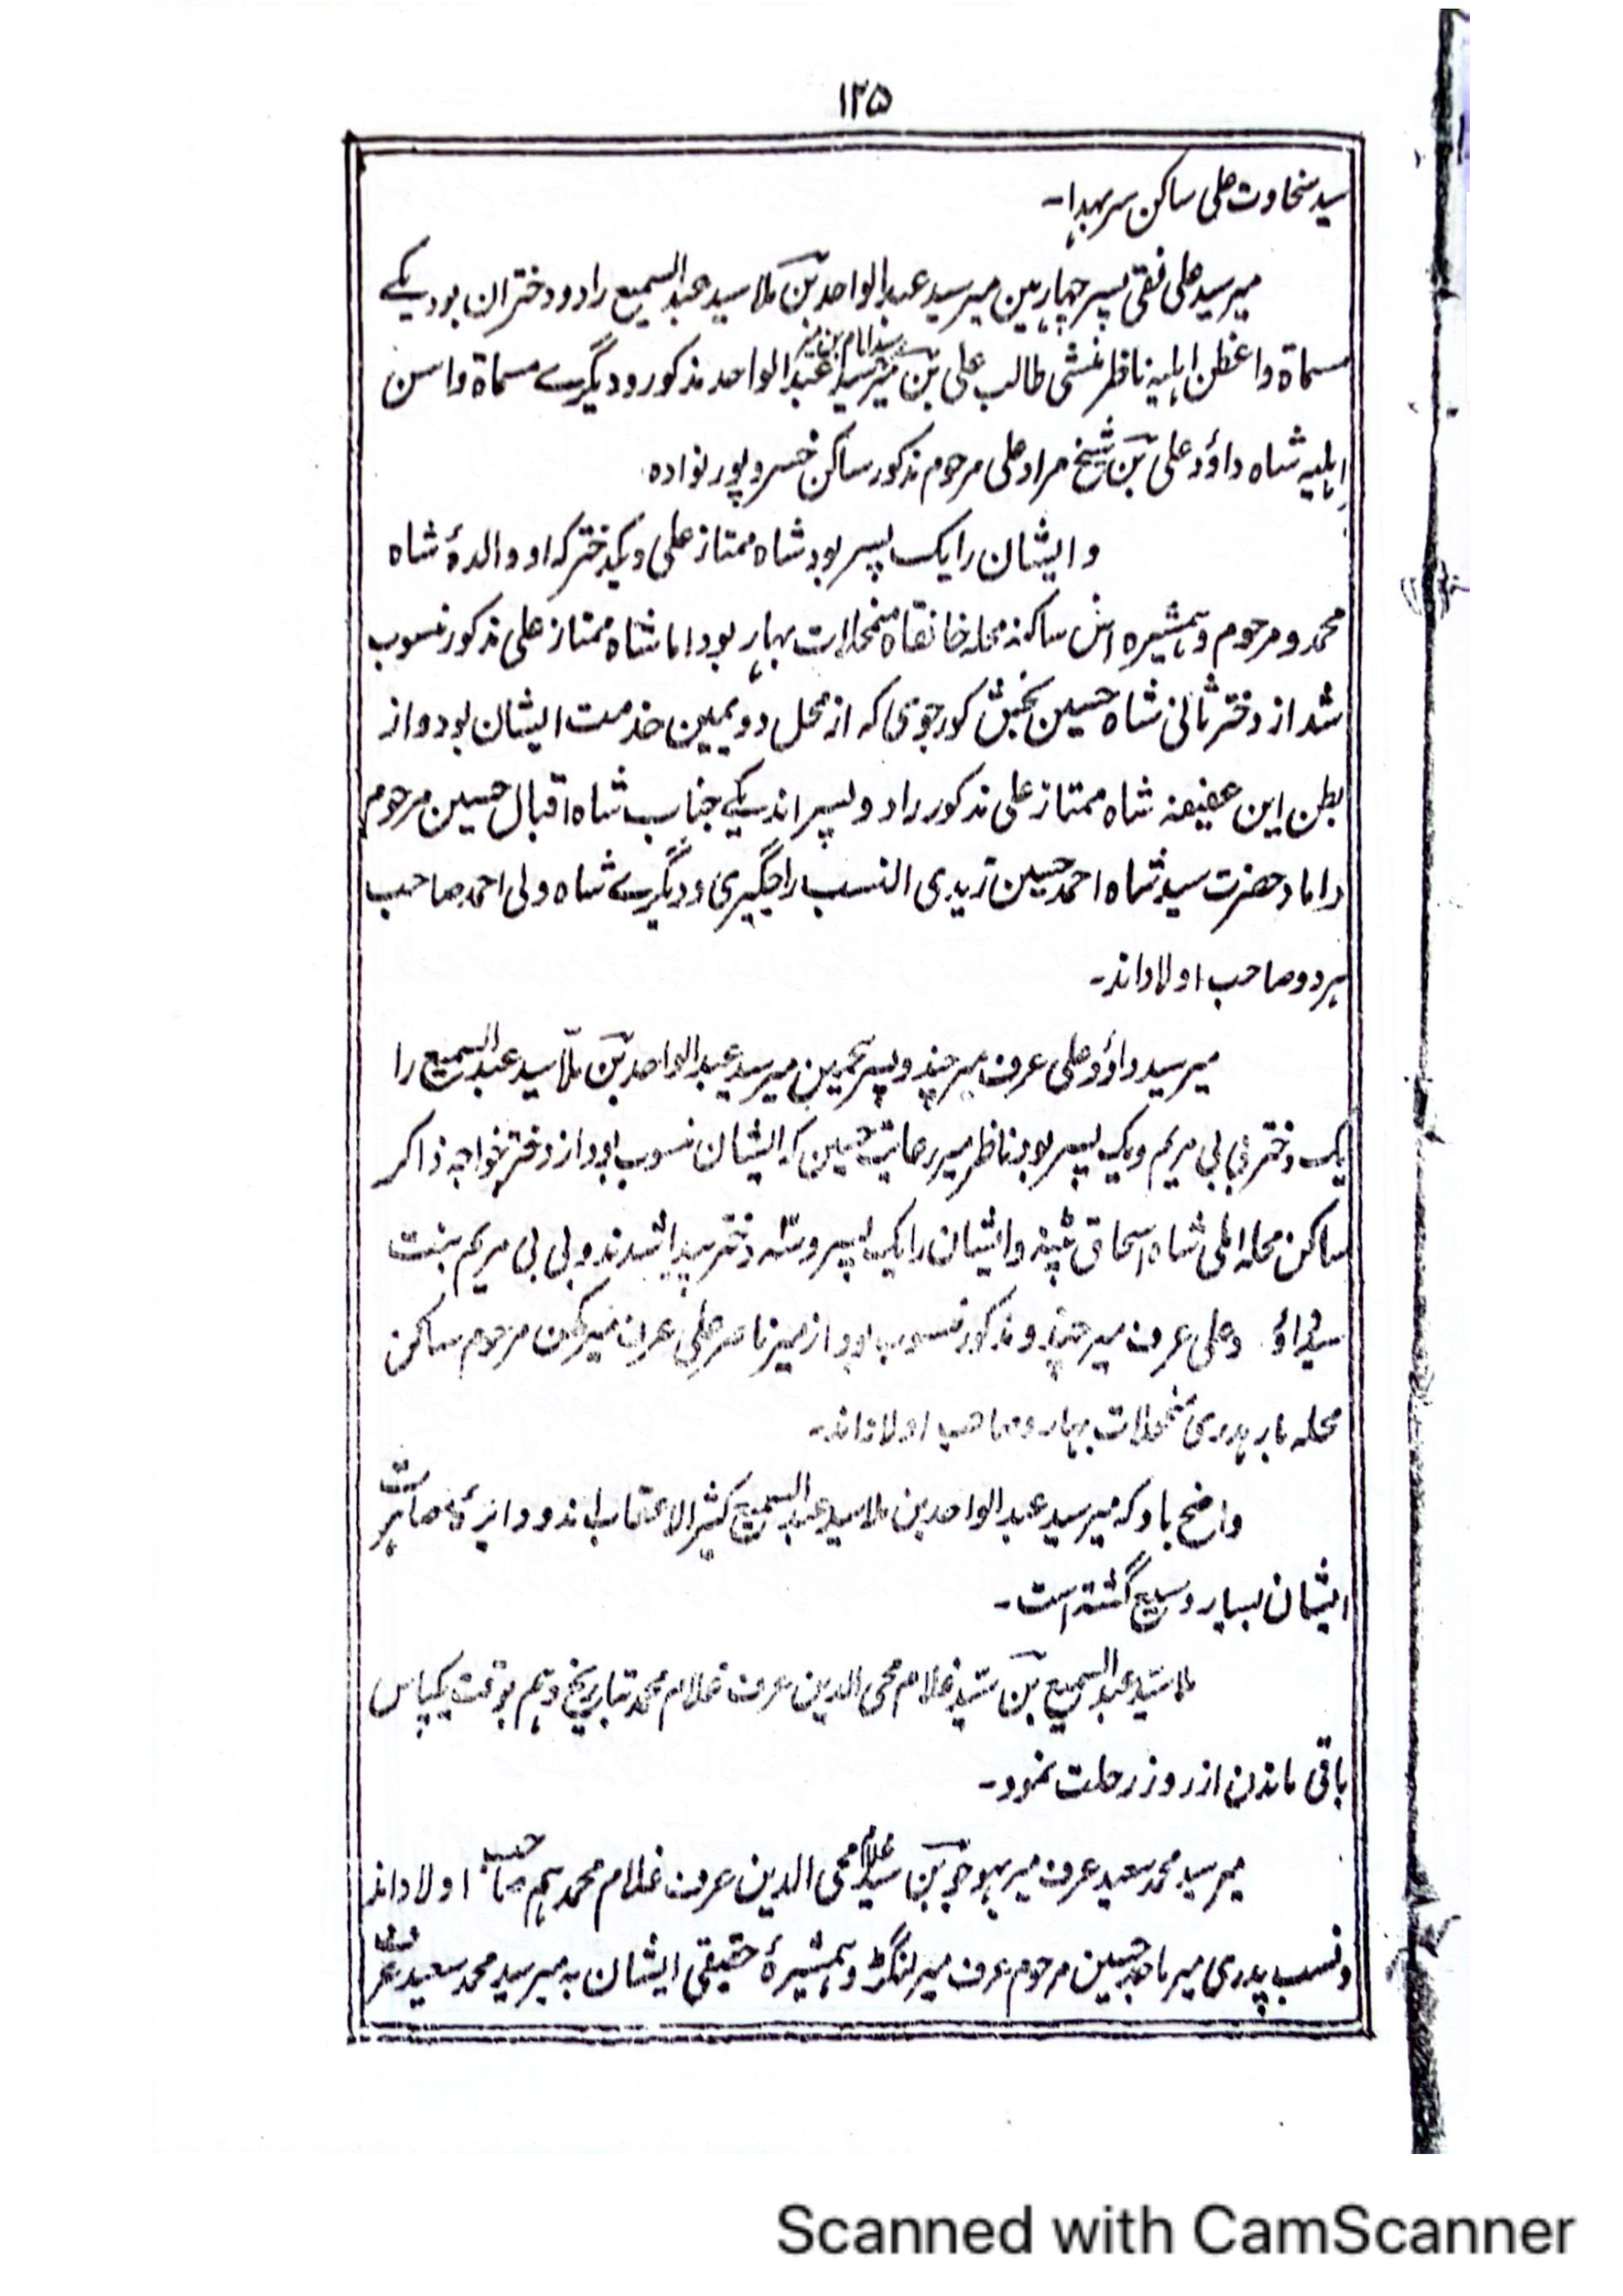 ۱۲۵
سید سخاوت علی ساکن سربهدا۔
میر سید علی نقی پسر چهارمین میر سید عبدالواحد بن ملا سید عبدالسمیع را دو دختران بود یکے
مسماة واعظن اہلیہ ناظر منشی طالب علی بن میر سید عبدالواحد مذکور و دیگرے مسماة واسن
اہلیہ شاہ داؤد علی بن شیخ مراد علی مرحوم مذکور ساکن خسروپور نوادہ
و ایشان را یک پسر بود شاہ ممتاز علی و یکدختر کہ او والدۀ شاہ
محمدو مرحوم و ہمشیرہ اش ساکنہ محلہ خانقاہ منمحلات بہار بود اما شاہ ممتاز علی مذکور منسوب
شد از دختر ثانی شاہ حسین بخش کورجوی کہ از محل دویمین خدمت ایشان بود و از
بطن این عفیفہ شاہ ممتاز علی مذکور را دو پسر اند یکے جناب شاہ اقبال حسین مرحوم
داماد حضرت سید شاہ احمد حسین زیدی النسب راجگیری و دیگرے شاہ ولی احمد صاحب
ہر دو صاحب اولاد اند۔
میر سید داؤد علی عرف میر چندو پسر پنجمین میر سید عبدالواحد بن ملا سید عبدالسمیع را
یک دختر بی بی مریم و یک پسر بود ناظر میر رعایت حسین کہ ایشان منسوب بود از دختر خواجہ ذاکر
ساکن محلہ املی شاہ اسحاق پٹنہ و ایشان را یک پسر و سہ دختر پیدا شدند و بی بی مریم بنت
سید داؤد علی عرف میر چندو مذکور منسوب بود از میر ناصر علی عرف میر مرحوم ساکن
محلہ بارہدری منمحلات بہار و صاحب اولاد اند۔
واضح باد کہ میر سید عبدالواحد بن ملا سید عبدالسمیع کثیر الاعقاب اند و دایرۀ مصاہرت
ایشان بسیار وسیع گشتہ است۔
ملا سید عبدالسمیع بن سید غلام محی الدین عرف غلام محمد بتاریخ دہم بوقت یکپاس
باقی ماندن از روز رحلت نمود۔
میر سید محمد سعید عرف میر بن سید غلام محی الدین عرف غلام محمد ہم صاحب اولاد اند
و نسب پدری میر ماجد حسین مرحوم عرف میر لنگڑ و ہمشیرۀ حقیقی ایشان بہ میر سید محمد سعید عرف
Scanned with CamScanner